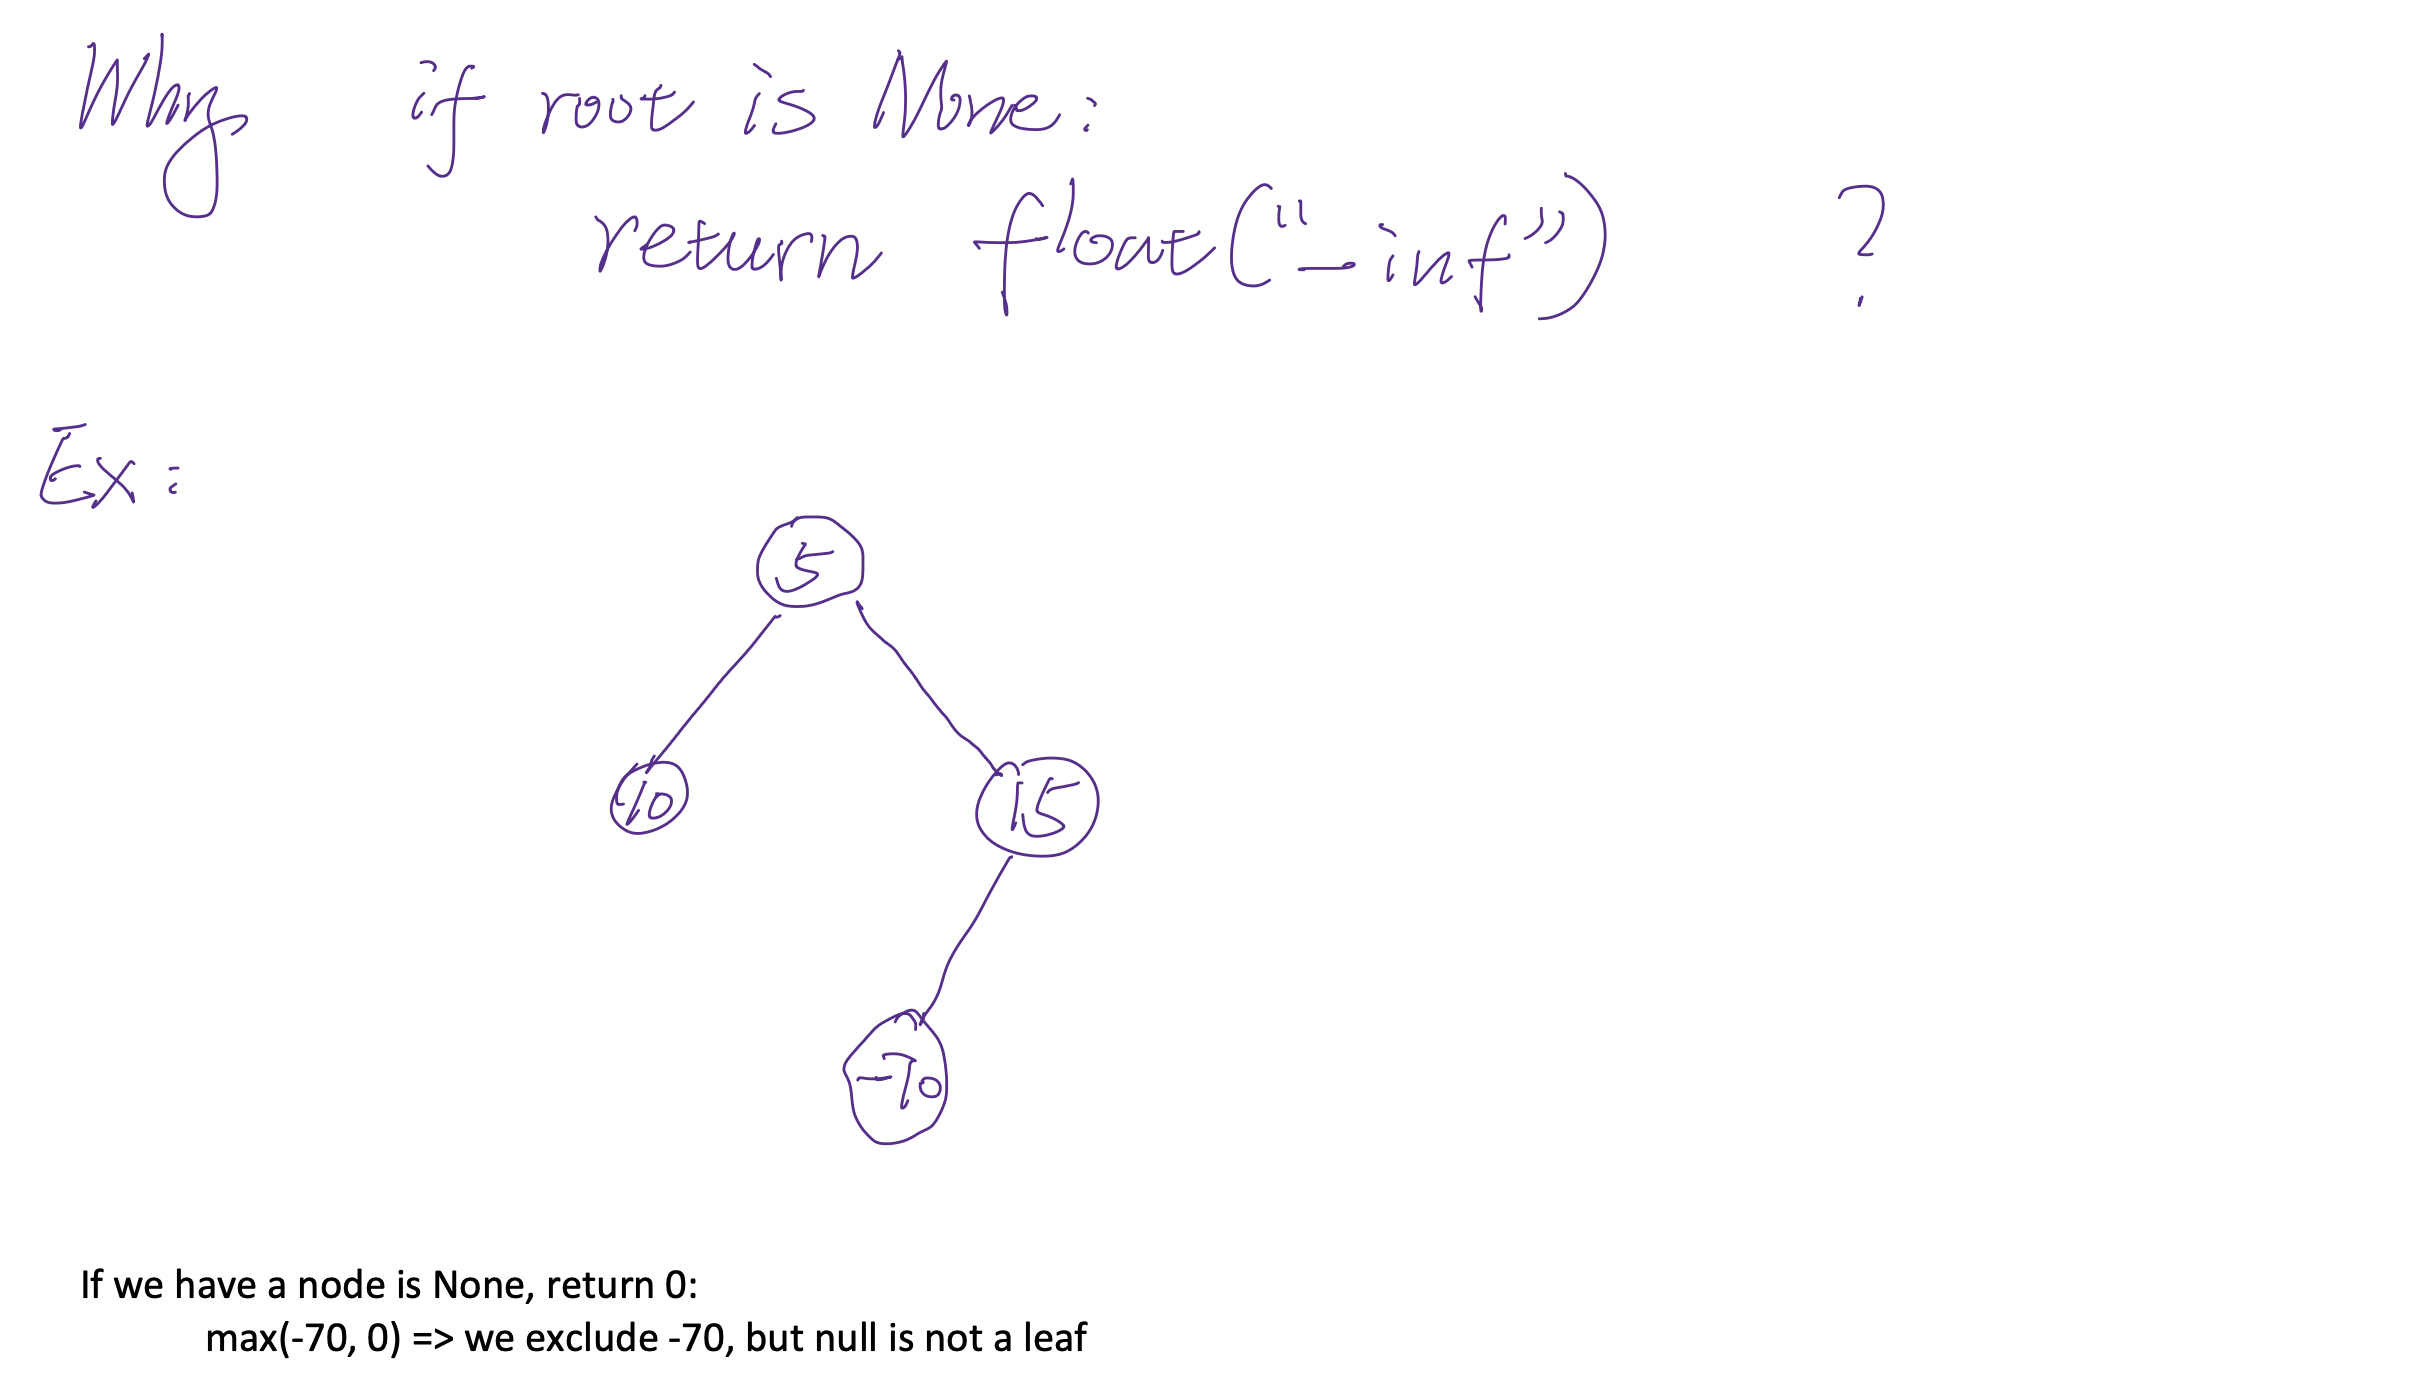 Why if root is None:
return float("-inf") ?
Ex:
5
10
15
-70
If we have a node is None, return 0:
max(-70, 0) => we exclude -70, but null is not a leaf